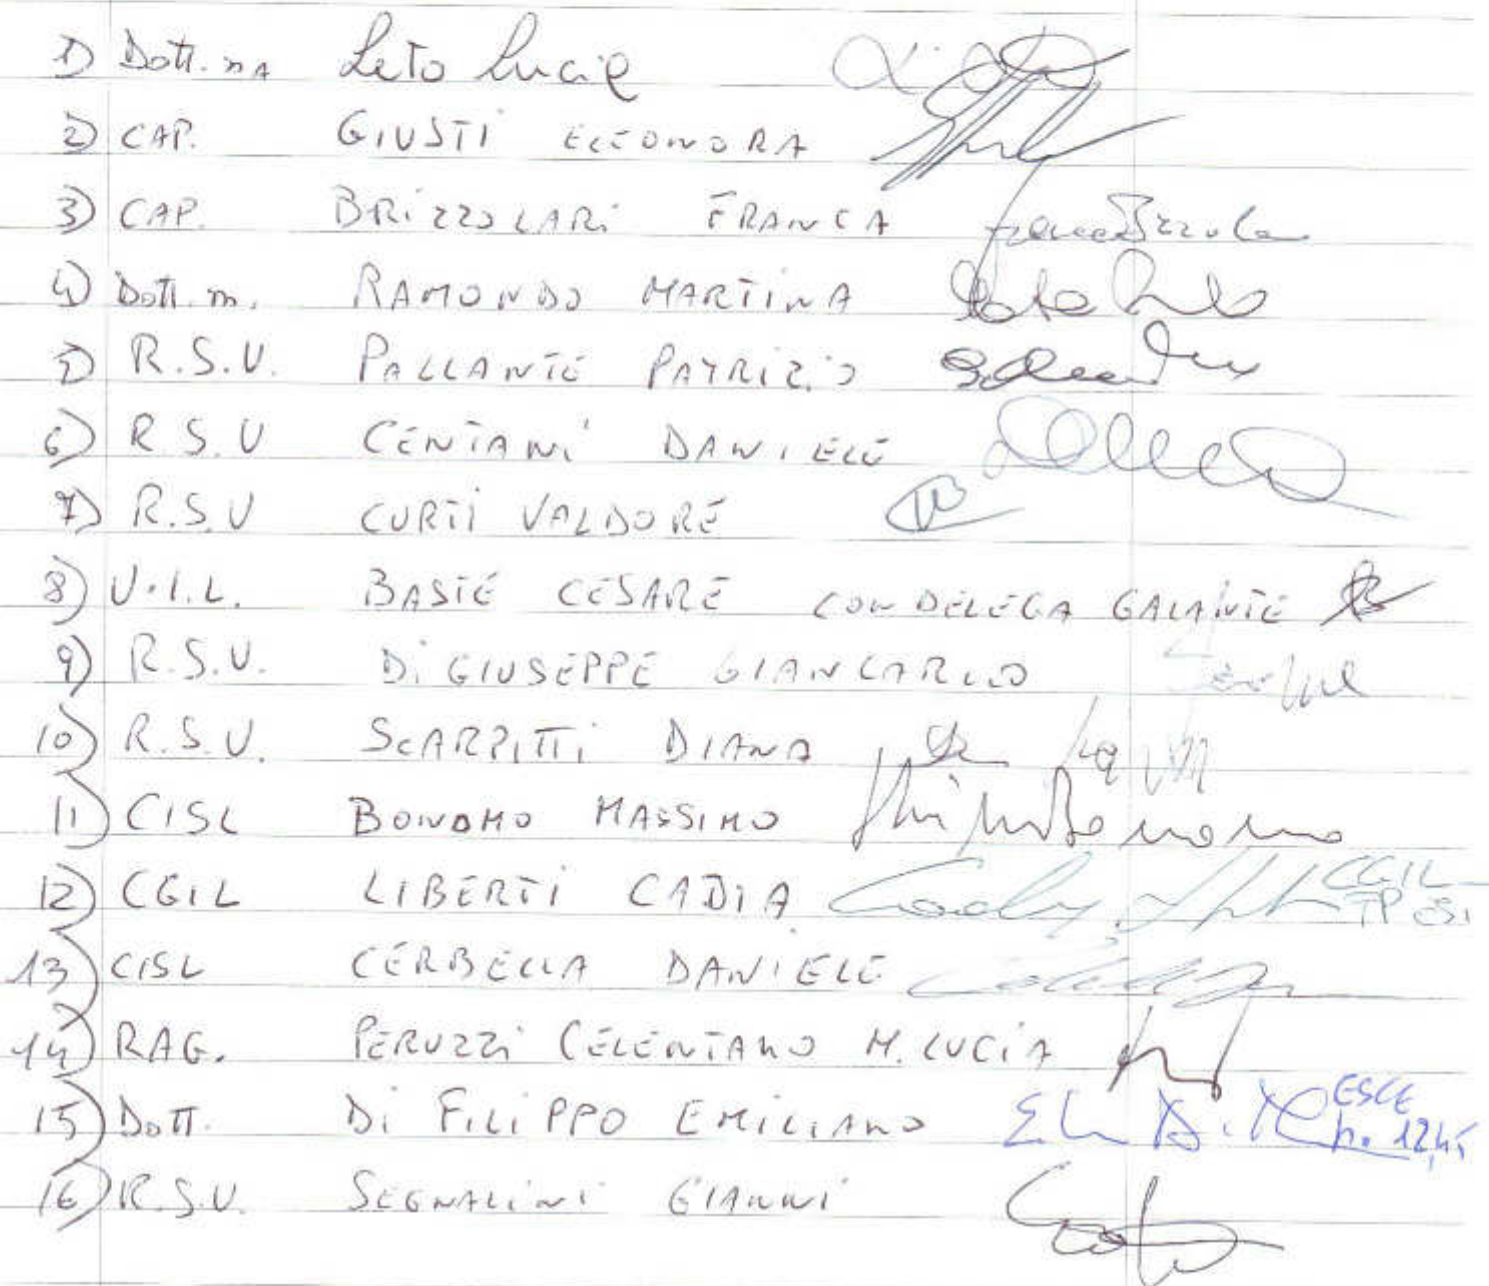 1) Dott.ssa Leto Lucia
2) CAP. GIUSTI ELEONORA
3) CAP. BRIZZOLARI FRANCA
4) Dott.ssa RAMONDO MARTINA
5) R.S.U. PALLANTE PATRIZIO
6) R.S.U CENTANI DANIELE
7) R.S.U CURTI VALDORE
8) U.I.L. BASILE CESARE CON DELEGA GALANTE
9) R.S.U. DI GIUSEPPE GIANCARLO
10) R.S.U. SCARPITTI DIANA
11) CISL BONOMO MASSIMO
12) CGIL LIBERTI CADIA CGIL
13) CISL CERBELLA DANIELE
14) RAG. PERUZZI CELENTANO M. LUCIA
15) Dott. DI FILIPPO EMILIANO ESCE h. 12,45
16) R.S.U. SEGNALINI GIANNI